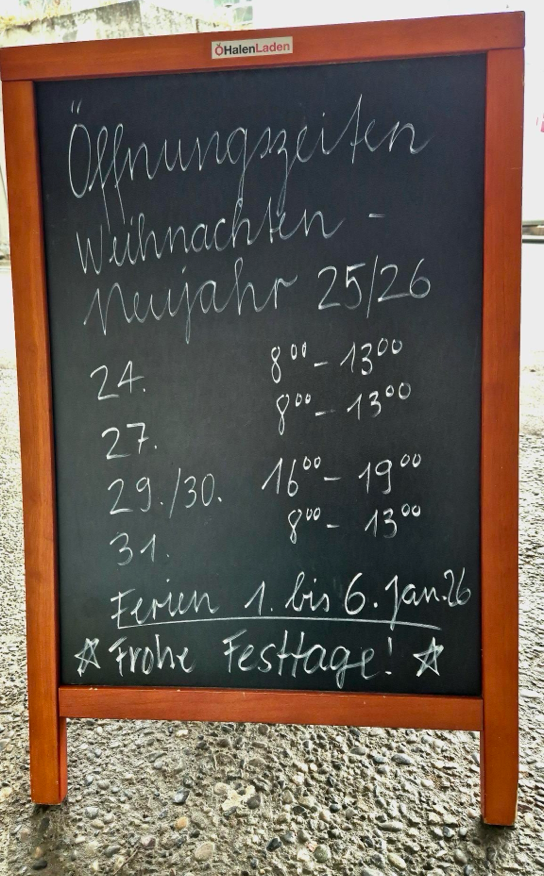 ÖHalenLaden
Öffnungszeiten
Weihnachten -
Neujahr 25/26
24. 8⁰⁰ - 13⁰⁰
27. 8⁰⁰ - 13⁰⁰
29./30. 16⁰⁰ - 19⁰⁰
31. 8⁰⁰ - 13⁰⁰
Ferien 1. bis 6. Jan. 26
☆ Frohe Festtage! ☆